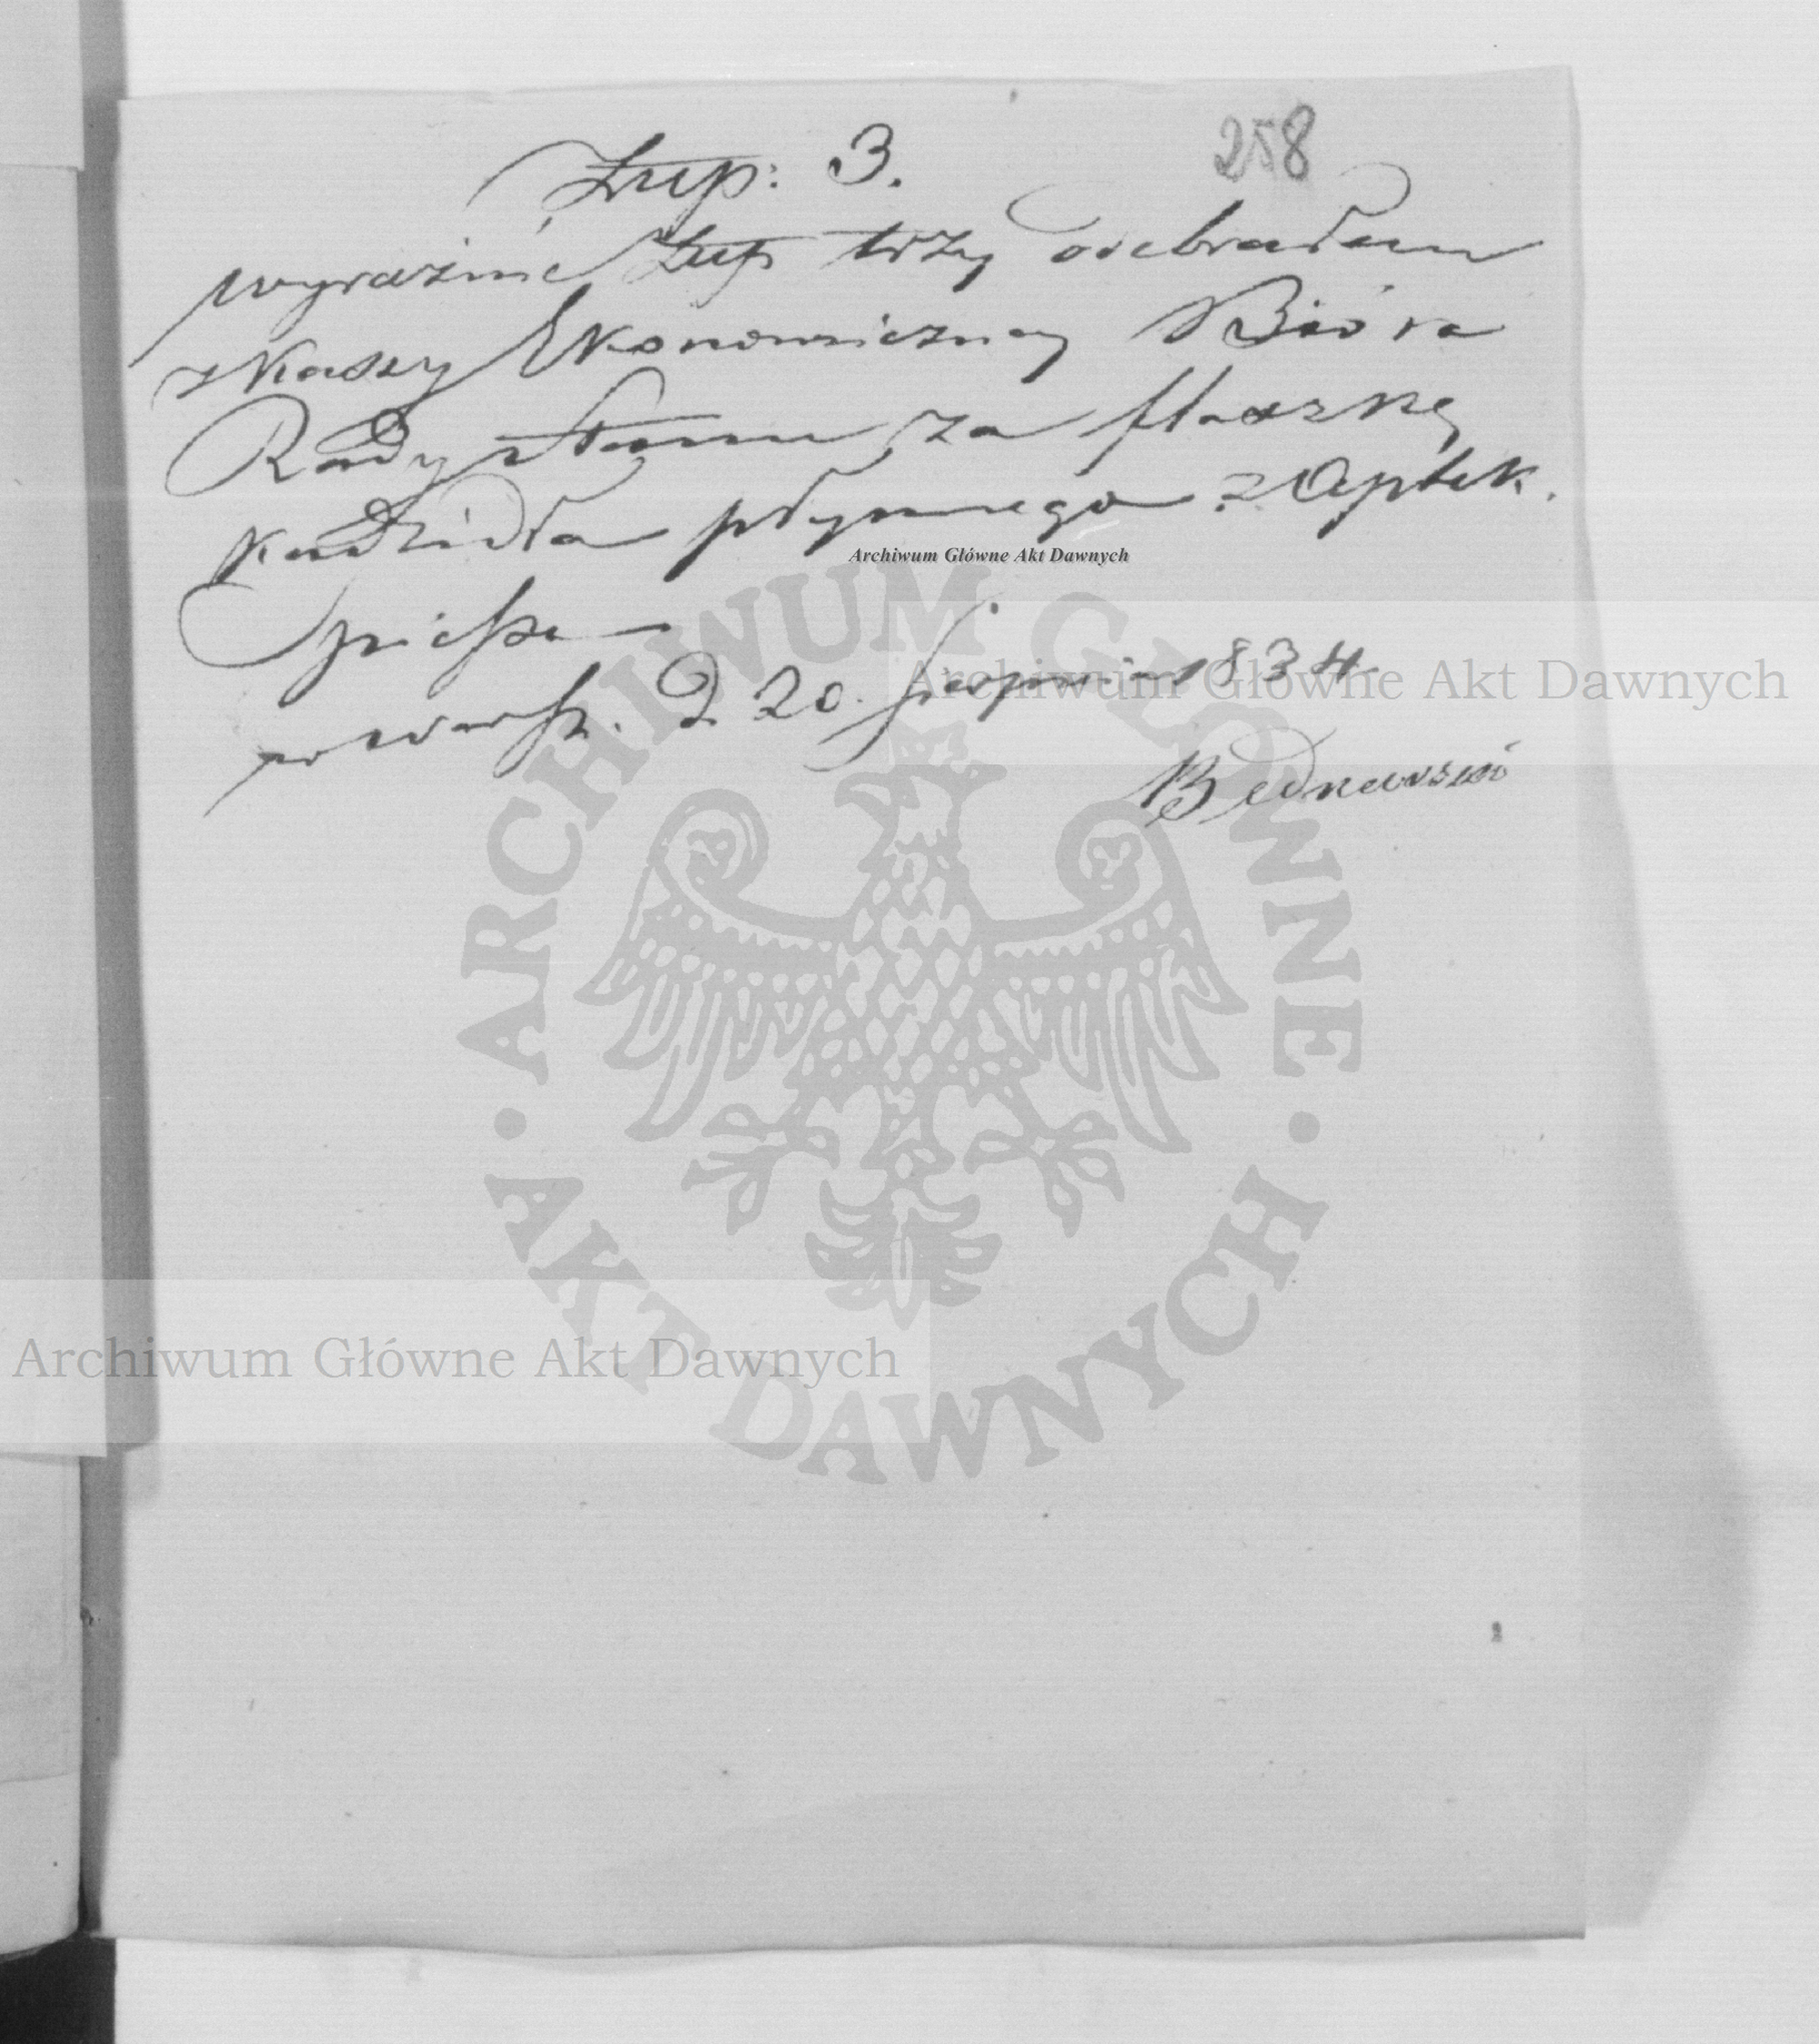 Złłp: 3. 258
wyraźnie Złłp trzy odebrałem
z Kassy Ekonomiczney Bióra
Rady Stanu za flaszkę
Kadzidła płynnego z Aptek.
Spiessa —
w Warsz. D 20. Sierpnia 1834
Bednarski
Archiwum Główne Akt Dawnych
Archiwum Główne Akt Dawnych
ARCHIWUM GŁÓWNE
AKT DAWNYCH
Archiwum Główne Akt Dawnych